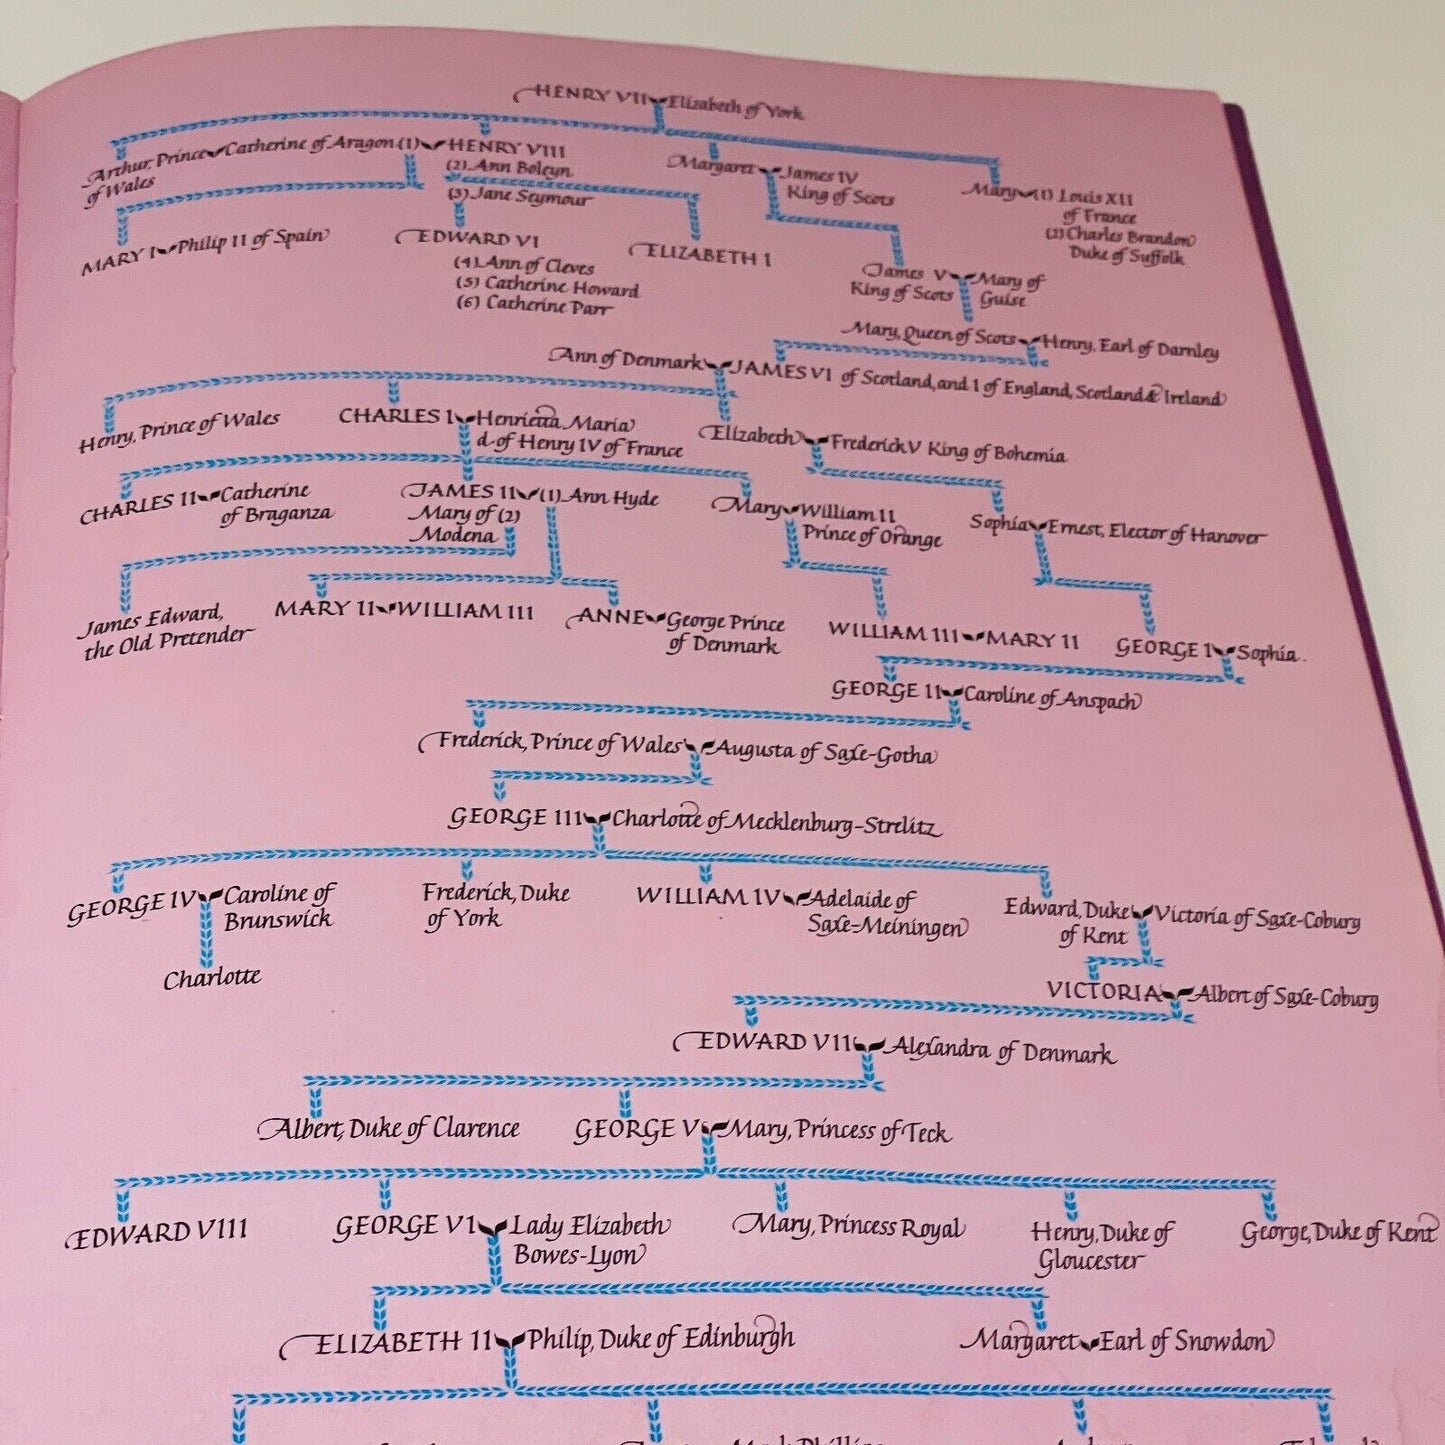 HENRY VII Elizabeth of York
Arthur, Prince Catherine of Aragon (1) HENRY VIII Margaret James IV Mary (1) Louis XII
of Wales (2) Ann Boleyn King of Scots of France
(3) Jane Seymour (2) Charles Brandon
Duke of Suffolk
MARY I Philip II of Spain EDWARD VI ELIZABETH I
(4) Ann of Cleves James V Mary of
(5) Catherine Howard King of Scots Guise
(6) Catherine Parr
Mary, Queen of Scots Henry, Earl of Darnley
Ann of Denmark JAMES VI of Scotland, and I of England, Scotland & Ireland
Henry, Prince of Wales CHARLES I Henrietta Maria Elizabeth Frederick V King of Bohemia
d. of Henry IV of France
CHARLES II Catherine JAMES II (1) Ann Hyde Mary William II Sophia Ernest, Elector of Hanover
of Braganza Mary of (2) Prince of Orange
Modena
James Edward, MARY II WILLIAM III ANNE George Prince WILLIAM III MARY II GEORGE I Sophia
the Old Pretender of Denmark
GEORGE II Caroline of Anspach
Frederick, Prince of Wales Augusta of Saxe-Gotha
GEORGE III Charlotte of Mecklenburg-Strelitz
GEORGE IV Caroline of Frederick, Duke WILLIAM IV Adelaide of Edward, Duke Victoria of Saxe-Coburg
Brunswick of York Saxe-Meiningen of Kent
Charlotte
VICTORIA Albert of Saxe-Coburg
EDWARD VII Alexandra of Denmark
Albert, Duke of Clarence GEORGE V Mary, Princess of Teck
EDWARD VIII GEORGE VI Lady Elizabeth Mary, Princess Royal Henry, Duke of George, Duke of Kent
Bowes-Lyon Gloucester
ELIZABETH II Philip, Duke of Edinburgh Margaret Earl of Snowdon